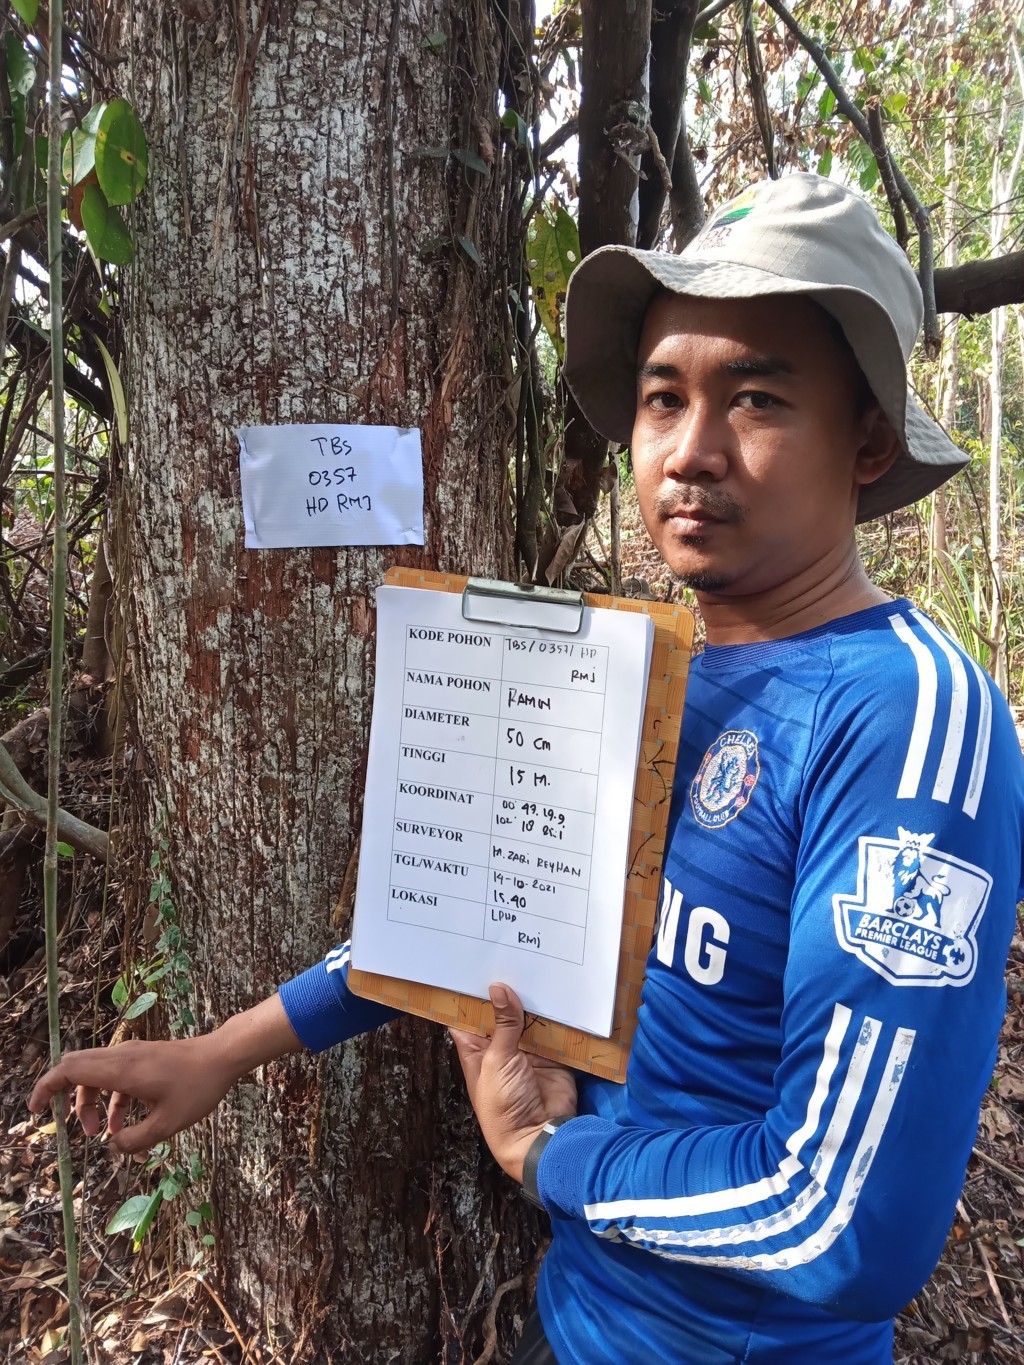 TBS
0357
HD RMJ
KODE POHON TBS/0357/HD
RMJ
NAMA POHON RAMIN
DIAMETER 50 cm
TINGGI 15 M.
KOORDINAT 00° 49. 19.9,
102° 18
SURVEYOR M. ZABI REYHAN
TGL/WAKTU 14-10-2021
15.40
LOKASI LPHD
RMJ
CHELSEA
FOOTBALL CLUB
NG
BARCLAYS
PREMIER LEAGUE